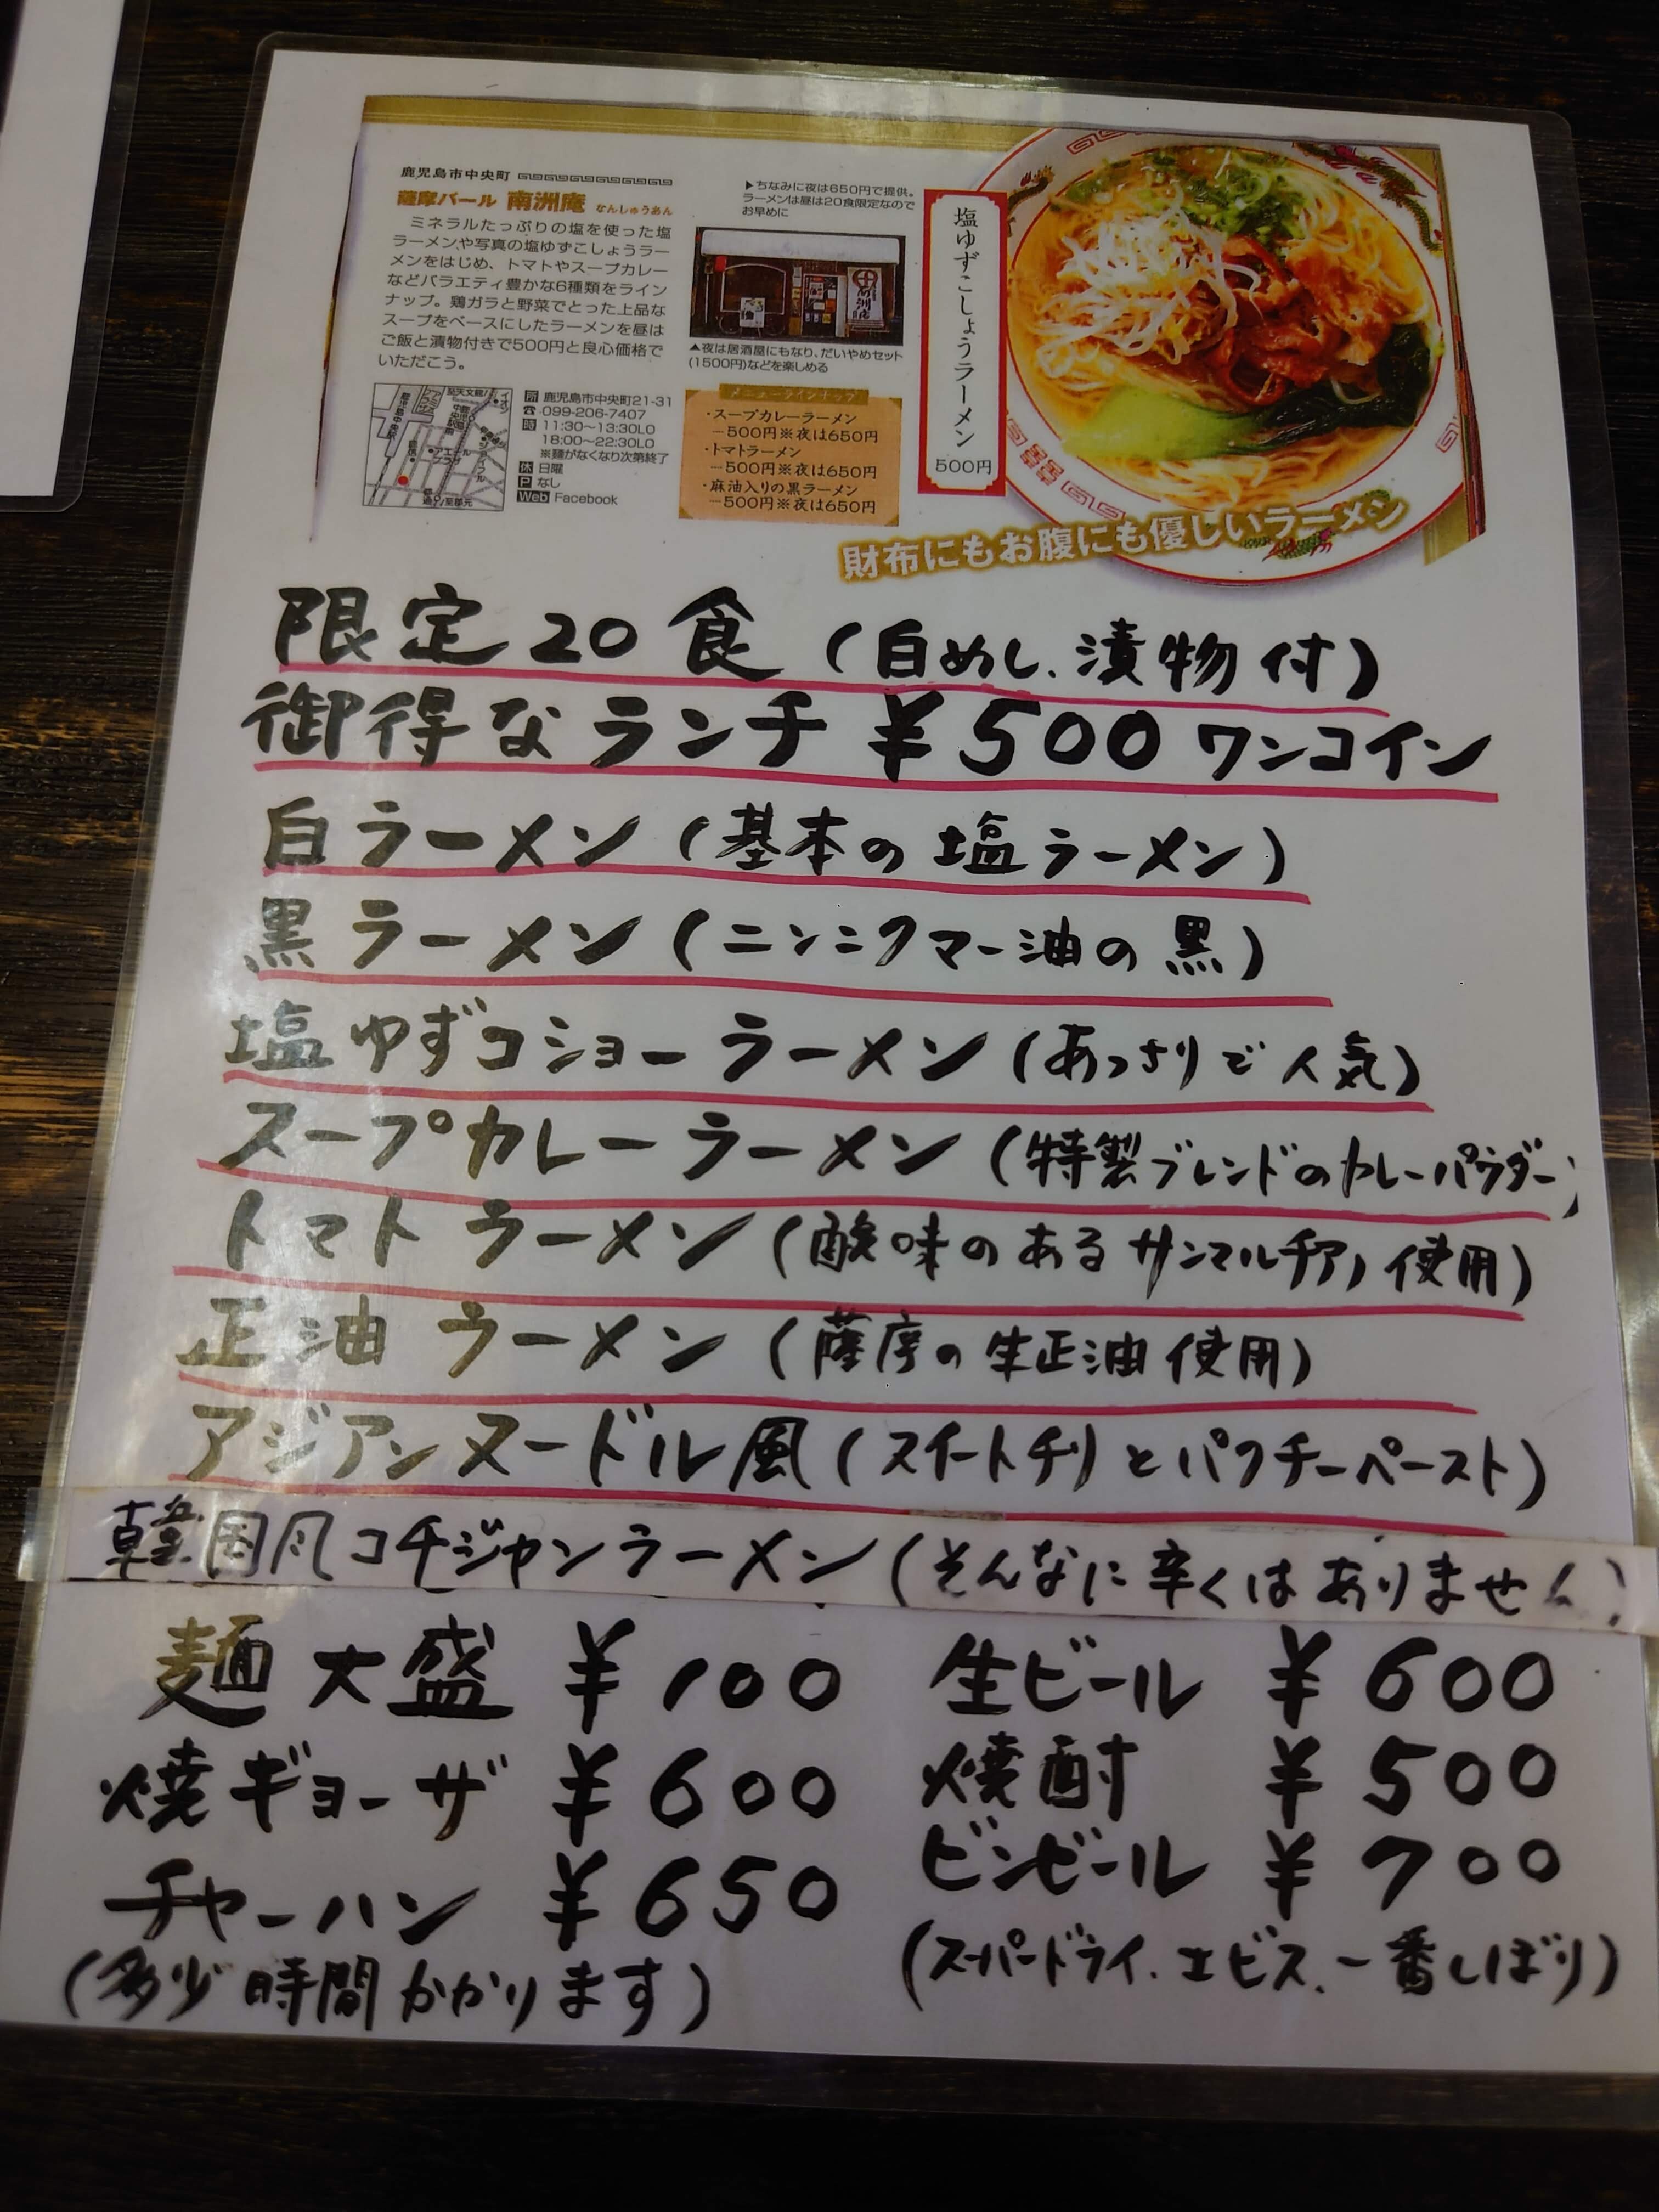 鹿児島市中央町
薩摩バール 南洲庵 なんしゅうあん
ミネラルたっぷりの塩を使った塩
ラーメンや写真の塩ゆずこしょうラー
メンをはじめ、トマトやスープカレー
などバラエティ豊かな6種類をライン
ナップ。鶏ガラと野菜でとった上品な
スープをベースにしたラーメンを昼は
ご飯と漬物付きで500円と良心価格で
いただこう。
▶ちなみに夜は650円で提供。
ラーメンは昼は20食限定なので
お早めに
▲夜は居酒屋にもなり、だいやめセット
(1500円)などを楽しめる
所 鹿児島市中央町21-31
☎ 099-206-7407
時 11:30〜13:30LO
18:00〜22:30LO
※麺がなくなり次第終了
休 日曜
P なし
Web Facebook
メニューラインナップ
・スープカレーラーメン
…500円※夜は650円
・トマトラーメン
…500円※夜は650円
・麻油入りの黒ラーメン
…500円※夜は650円
塩ゆずこしょうラーメン
500円
財布にもお腹にも優しいラーメン
限定20食(白めし、漬物付)
御得なランチ ¥500 ワンコイン
白ラーメン(基本の塩ラーメン)
黒ラーメン(ニンニクマー油の黒)
塩ゆずコショーラーメン(あっさりで人気)
スープカレーラーメン(特製ブレンドのカレーパウダー)
トマトラーメン(酸味のあるサンマルチアノ使用)
正油ラーメン(薩摩の生正油使用)
アジアンヌードル風(スイートチリとパクチーペースト)
韓国風コチジャンラーメン(そんなに辛くはありません)
麺大盛 ¥100
焼ギョーザ ¥600
チャーハン ¥650
(多少時間かかります)
生ビール ¥600
焼酎 ¥500
ビンビール ¥700
(スーパードライ、エビス、一番しぼり)